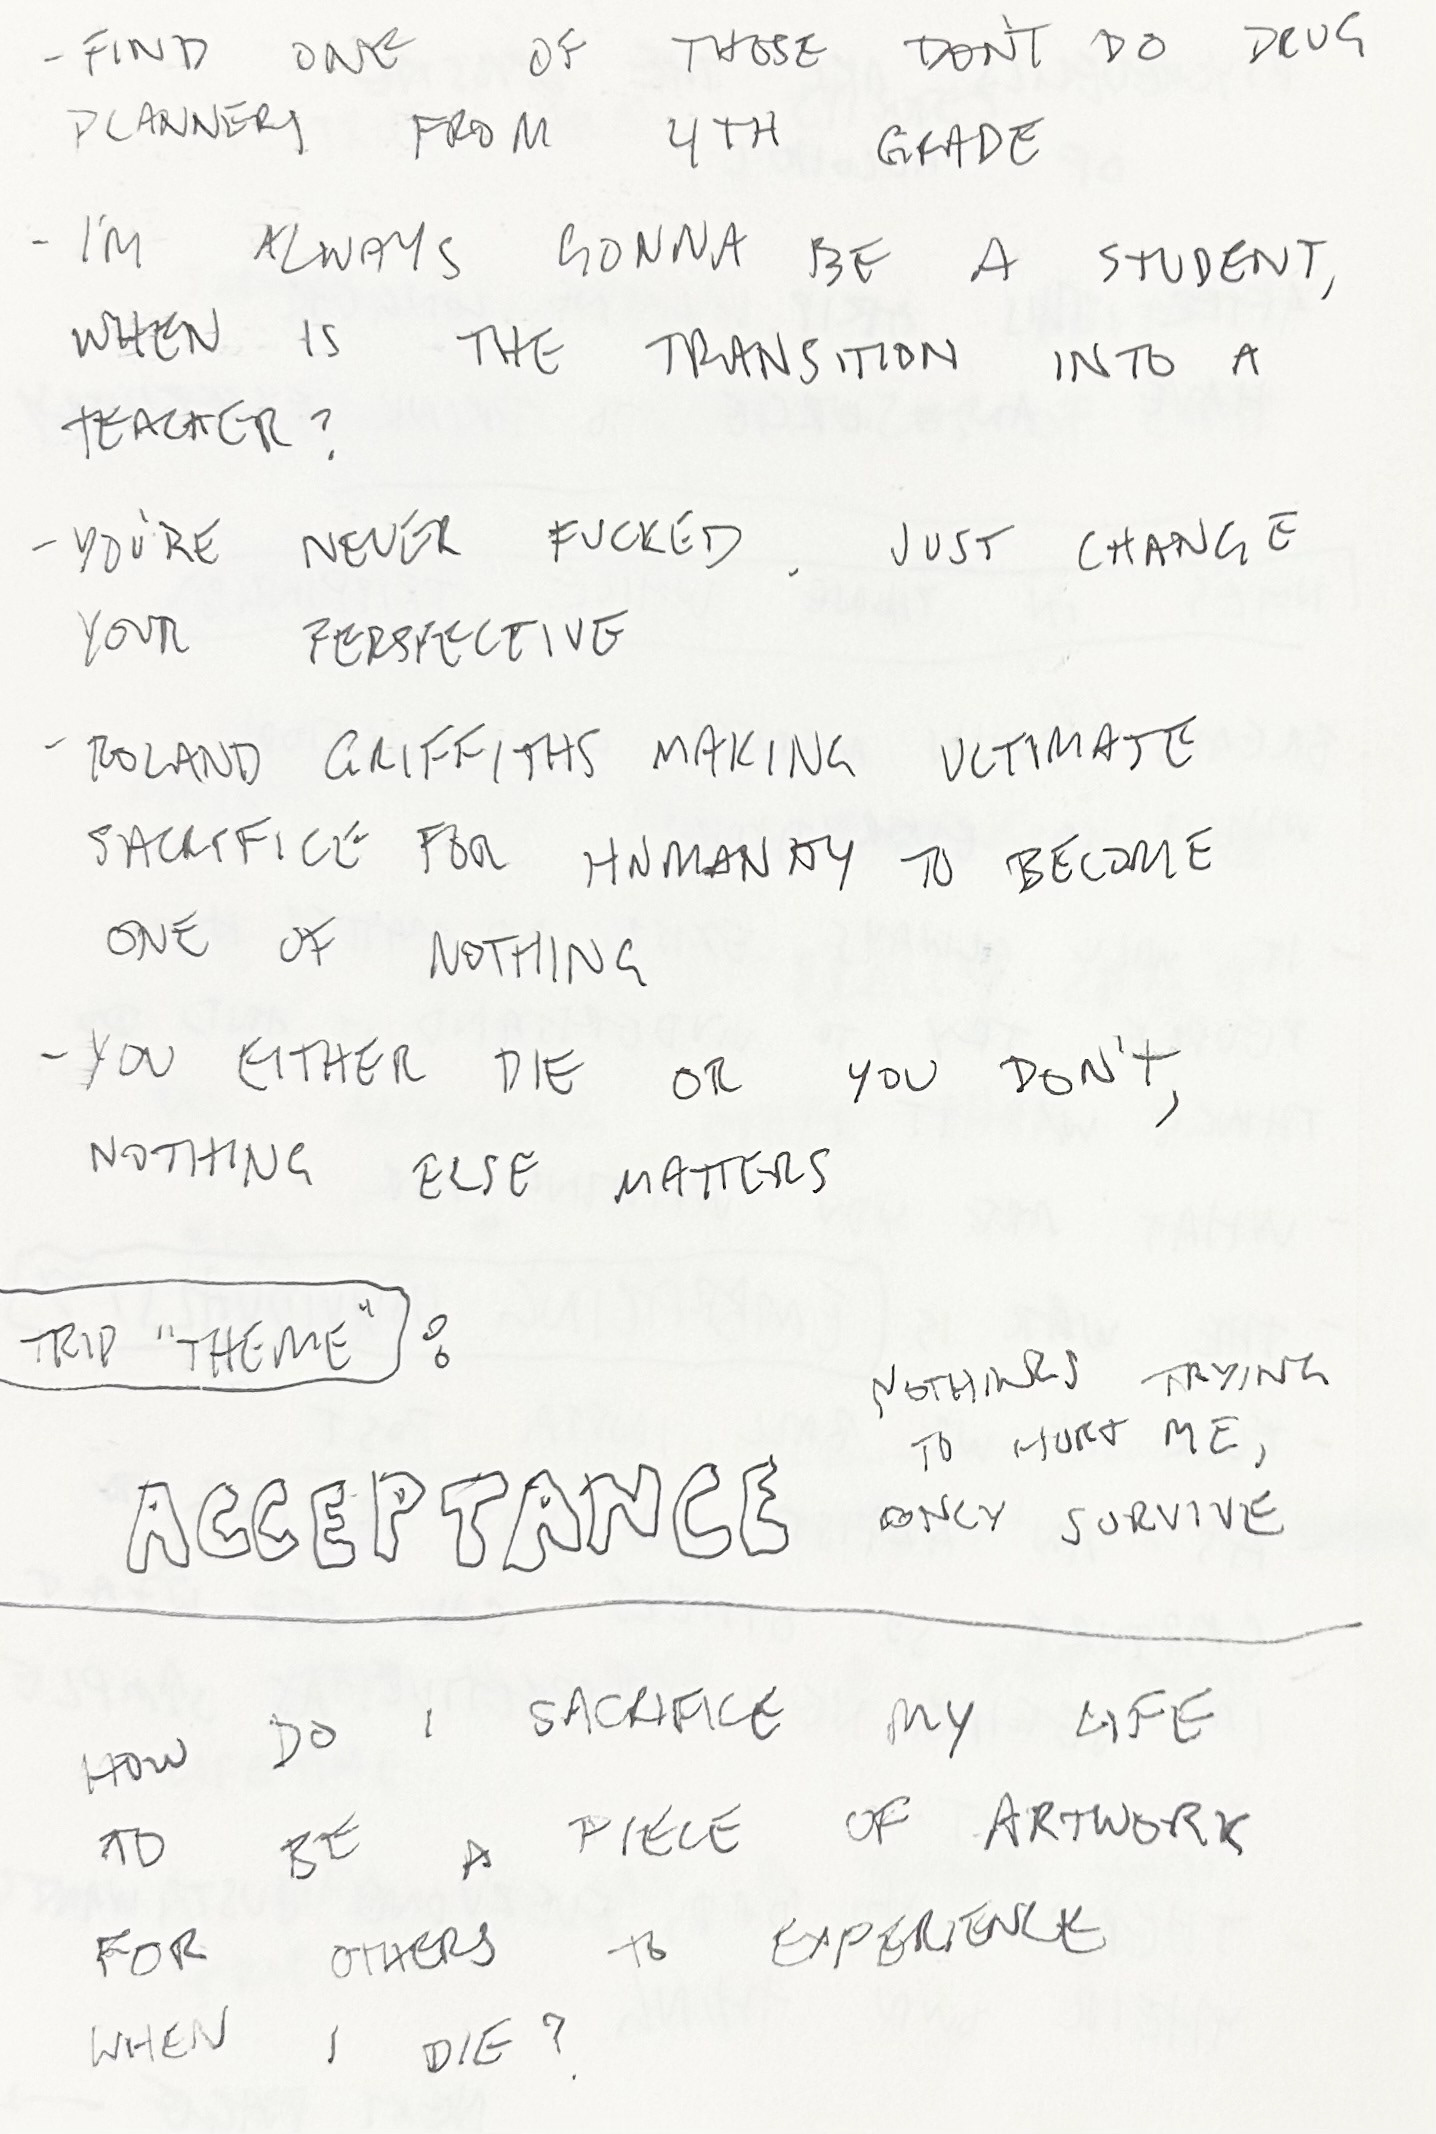 - FIND ONE OF THOSE DON'T DO DRUG
PLANNERS FROM 4TH GRADE
- I'M ALWAYS GONNA BE A STUDENT,
WHEN IS THE TRANSITION INTO A
TEACHER?
- YOU'RE NEVER FUCKED. JUST CHANGE
YOUR PERSPECTIVE
- ROLAND GRIFFITHS MAKING ULTIMATE
SACRIFICE FOR HUMANITY TO BECOME
ONE OF NOTHING
- YOU EITHER DIE OR YOU DON'T,
NOTHING ELSE MATTERS
TRIP "THEME":
ACCEPTANCE
NOTHINGS TRYING
TO HURT ME,
ONLY SURVIVE
HOW DO I SACRIFICE MY LIFE
TO BE A PIECE OF ARTWORK
FOR OTHERS TO EXPERIENCE
WHEN I DIE?